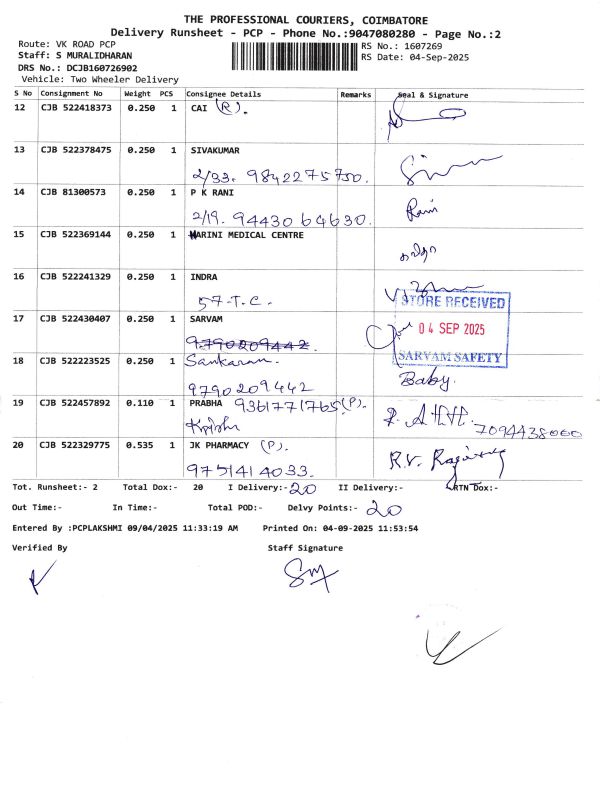 THE PROFESSIONAL COURIERS, COIMBATORE
Delivery Runsheet - PCP - Phone No.:9047080280 - Page No.:2
Route: VK ROAD PCP
RS No.: 1607269
Staff: S MURALIDHARAN
RS Date: 04-Sep-2025
DRS No.: DCJB160726902
Vehicle: Two Wheeler Delivery
S No Consignment No Weight PCS Consignee Details Remarks Seal & Signature
12 CJB 522418373 0.250 1 CAI (R).
13 CJB 522378475 0.250 1 SIVAKUMAR
2/33. 9842275750.
14 CJB 81300573 0.250 1 P K RANI
2/19. 9443064630. Rani
15 CJB 522369144 0.250 1 HARINI MEDICAL CENTRE
16 CJB 522241329 0.250 1 INDRA
57-T.C.
STORE RECEIVED
17 CJB 522430407 0.250 1 SARVAM
04 SEP 2025
9790209442.
SARVAM SAFETY
18 CJB 522223525 0.250 1 Sankaran.
Baby.
9790209442
19 CJB 522457892 0.110 1 PRABHA 9361771765(P).
7094438060
20 CJB 522329775 0.535 1 JK PHARMACY (P).
9751414033.
Tot. Runsheet:- 2 Total Dox:- 20 I Delivery:- 20 II Delivery:- RTN Dox:-
Out Time:- In Time:- Total POD:- Delvy Points:- 20
Entered By :PCPLAKSHMI 09/04/2025 11:33:19 AM Printed On: 04-09-2025 11:53:54
Verified By Staff Signature